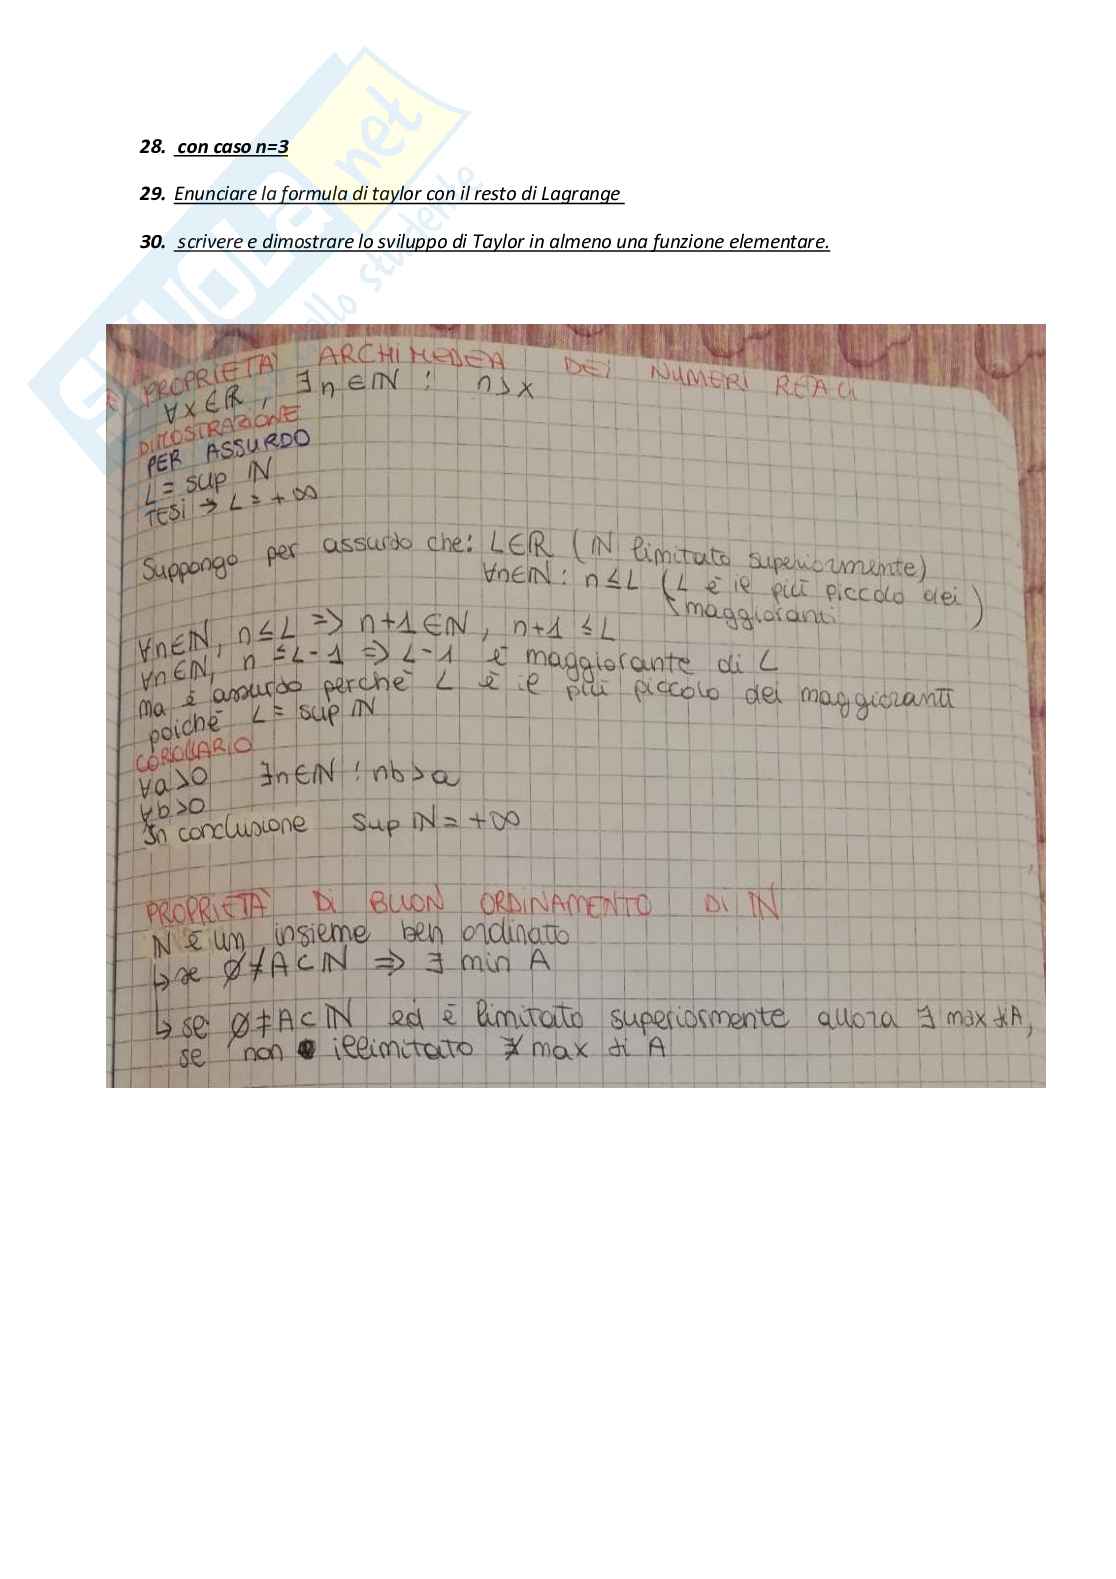 28. con caso n=3
29. Enunciare la formula di taylor con il resto di Lagrange
30. scrivere e dimostrare lo sviluppo di Taylor in almeno una funzione elementare.
SKUOLA.net
PROPRIETÀ ARCHIMEDEA DEI NUMERI REALI
∀x∈ℝ, ∃n∈ℕ : n>x
DIMOSTRAZIONE
PER ASSURDO
L = sup ℕ
TESI → L = +∞
Suppongo per assurdo che: L∈ℝ (ℕ limitato superiormente)
∀n∈ℕ: n≤L (L è il più piccolo dei
maggioranti)
∀n∈ℕ, n≤L => n+1∈ℕ, n+1≤L
∀n∈ℕ, n≤L-1 => L-1 è maggiorante di L
ma è assurdo perchè L è il più piccolo dei maggioranti
poichè L = sup ℕ
COROLLARIO
∀a>0 ∃n∈ℕ : nb>a
∀b>0
In conclusione sup ℕ = +∞
PROPRIETÀ DI BUON ORDINAMENTO DI ℕ
ℕ è un insieme ben ordinato
↳ se ∅≠A⊂ℕ => ∃ min A
↳ se ∅≠A⊂ℕ ed è limitato superiormente allora ∃ max di A,
se non illimitato ∄ max di A